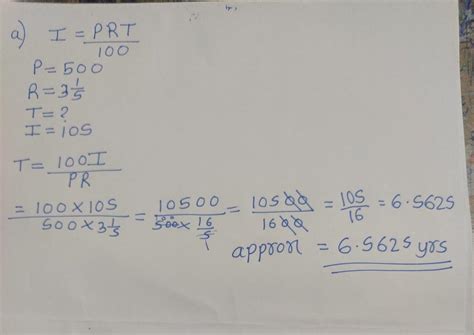 a) I = PRT/100
P = 500
R = 3 1/5
T = ?
I = 105
T = 100I/PR
= 100 × 105 / 500 × 3 1/5 = 10500 / 500 × 16/5 = 10500/1600 = 105/16 = 6.5625
approxl = 6.5625 yrs